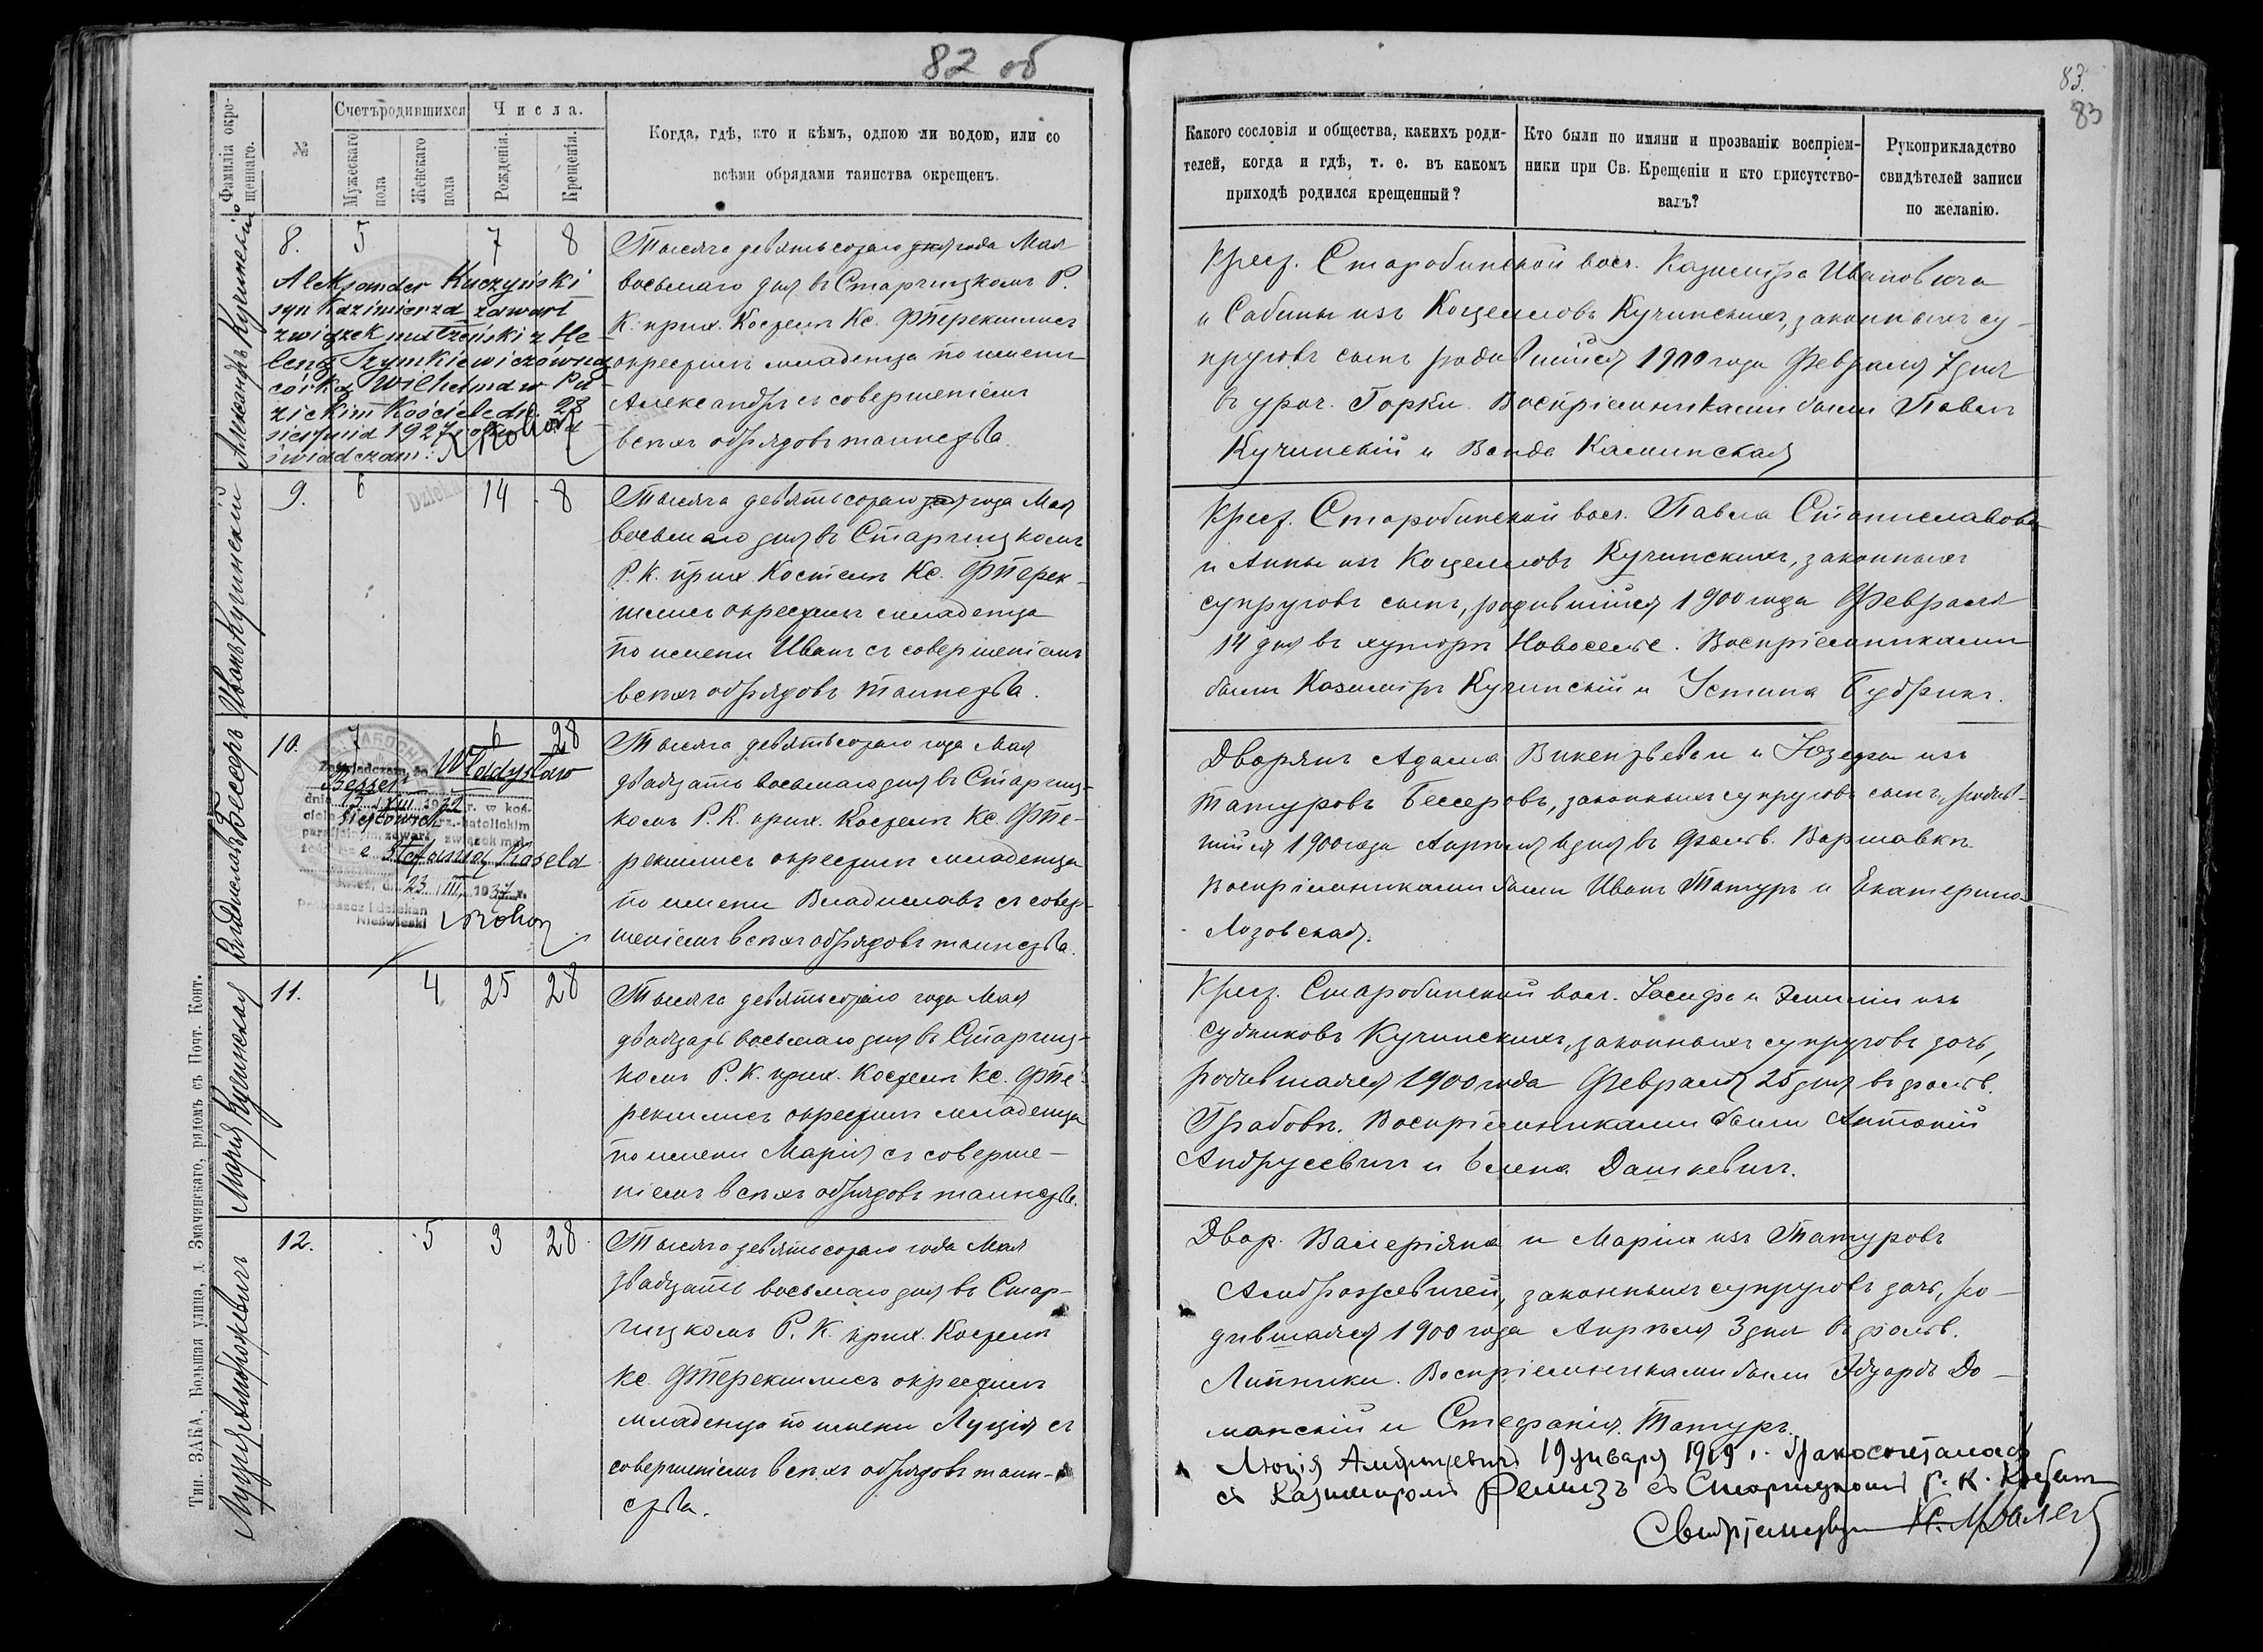 82 об
Фамилія окрещеннаго.
№
Счетъ родившихся
Мужескаго пола
Женскаго пола
Числа.
Рожденія.
Крещенія.
Когда, гдѣ, кто и кѣмъ, одною ли водою, или со
всѣми обрядами таинства окрещенъ.
Александръ Кучинскій
8. 5 7 8
Aleksander Kuczyński
syn Kazimierza zawarł
związek małżeński z He-
leną Szymkiewiczówną
córką Wilhelma w
kościele dn. 28
sierpnia 1927
świadczam:
Тысяча девятьсотаго года Мая
восьмаго дня въ Старчицкомъ Р.
К. прих. Костелѣ Кс. Фтерекшисъ
окрестилъ младенца по имени
Александръ съ совершеніемъ
всѣхъ обрядовъ таинства.
Иванъ Кучинскій
9. 6 14 8
Тысяча девятьсотаго года Мая
восьмаго дня въ Старчицкомъ
Р. К. прих. Костелѣ Кс. Фтерек-
шисъ окрестилъ младенца
по имени Иванъ съ совершеніемъ
всѣхъ обрядовъ таинства.
Владиславъ Бессеръ
10. 7 6 28
Zaświadczam, że Władysław
Besser
dnia 13 XII 1932 r. w koś-
ciele rz.-katolickim
parafjalnym zawarł związek mał-
z Stefanją Kaseła
23 III 1937 r.
Proboszcz i dziekan
Nieświeski
Тысяча девятьсотаго года Мая
двадцать восьмаго дня въ Старчиц-
комъ Р. К. прих. Костелѣ Кс. Фте-
рекшисъ окрестилъ младенца
по имени Владиславъ съ совер-
шеніемъ всѣхъ обрядовъ таинства.
Марія Кучинская
11. 4 25 28
Тысяча девятьсотаго года Мая
двадцать восьмаго дня въ Старчиц-
комъ Р. К. прих. Костелѣ Кс. Фте-
рекшисъ окрестилъ младенца
по имени Марія съ соверше-
ніемъ всѣхъ обрядовъ таинства.
Луція Амброжевичъ
12. 5 3 28
Тысяча девятьсотаго года Мая
двадцать восьмаго дня въ Стар-
чицкомъ Р. К. прих. Костелѣ
Кс. Фтерекшисъ окрестилъ
младенца по имени Луція съ
совершеніемъ всѣхъ обрядовъ таин-
ства.
Тип. ЗАКА, Большая улица, д. Змачинскаго, рядомъ съ Почт. Конт.
83.
83
Какого сословія и общества, какихъ роди-
телей, когда и гдѣ, т. е. въ какомъ
приходѣ родился крещенный?
Кто были по имяни и прозванію воспріем-
ники при Св. Крещеніи и кто присутство-
валъ?
Рукоприкладство
свидѣтелей записи
по желанію.
Крест. Старобинской вол. Казимира Ивановича
и Сабины изъ Коцелловъ Кучинскихъ, законныхъ су-
пруговъ сынъ родившійся 1900 года Февраля 7 дня
въ уроч. Горки. Воспріемниками были Павелъ
Кучинскій и Ванда Каминская
Крест. Старобинской вол. Павла Станиславова
и Анны изъ Коцелловъ Кучинскихъ, законныхъ
супруговъ сынъ, родившійся 1900 года Февраля
14 дня въ хуторѣ Новоселье. Воспріемниками
были Казимиръ Кучинскій и Устина Будрикъ.
Дворянъ Адама Викентьева и Юзефы изъ
Татуровъ Бессеровъ, законныхъ супруговъ сынъ, родив-
шійся 1900 года Апрѣля 6 дня въ фольв. Варшавкѣ.
Воспріемниками были Иванъ Татуръ и Екатерина
Лозовская.
Крест. Старобинской вол. Іосифа и Эмиліи изъ
Судниковъ Кучинскихъ, законныхъ супруговъ дочь,
родившаяся 1900 года Февраля 25 дня въ фольв.
Грабовѣ. Воспріемниками были Антоній
Андрусевичъ и Елена Дашкевичъ.
Двор. Валеріяна и Маріи изъ Татуровъ
Амброжевичей, законныхъ супруговъ дочь, ро-
дившаяся 1900 года Апрѣля 3 дня въ фольв.
Липники. Воспріемниками были Эдуардъ До-
манскій и Стефанія Татуръ.
Люція Амброжевичъ 19 января 1919 г. бракосочеталась
съ Казимиромъ Ремизъ въ Старчицкомъ Р. К. Костелѣ
Свидѣтельствую Кс.